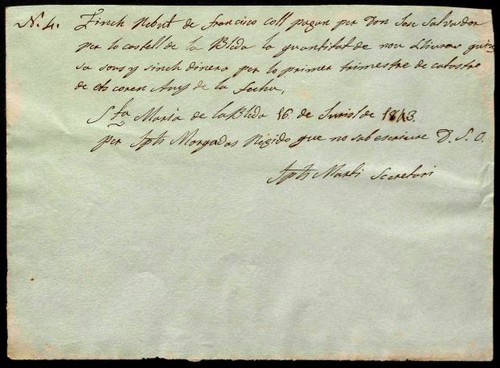 N. 4. Tinch Rebut de Francisco Coll pagan per Don Jose Salvador
per lo castell de la Bleda la quantitat de nou Lliuras quin
sa sous y sinch diners per lo primer trimestre de catastro
de est corent Any de la fecha,
Sta Maria de la Bleda 16 de Juriol de 1813.
per Jph Morgadas Regido que no sab escriurer D. S. O.
Jph Marti Secretari